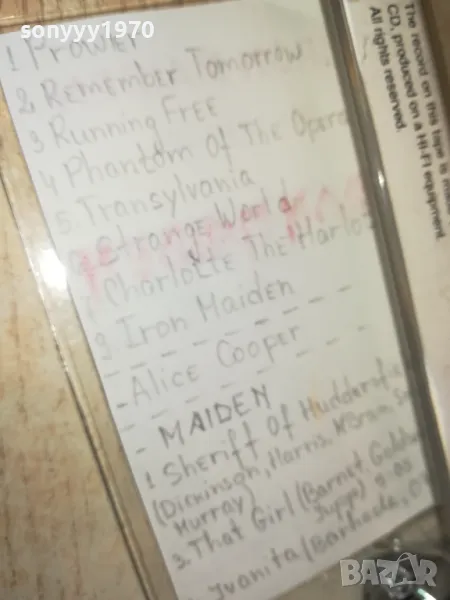 sonyyy1970
1 Prowler
2 Remember Tomorrow
3 Running Free
4 Phantom Of The Opera
5 Transylvania
Strange World
Charlotte The Harlot
Iron Maiden
- Alice Cooper
- MAIDEN
1 Sheriff Of Huddersf
(Dickinson, Harris, McBrain, S
Murray)
3. That Girl (Barnet, Goldw
Jupp)
Juanita (Barnacle, O
The record on this tape is made
CD, produced on a HI-FI equipment
All rights reserved.
BAZAR
bg